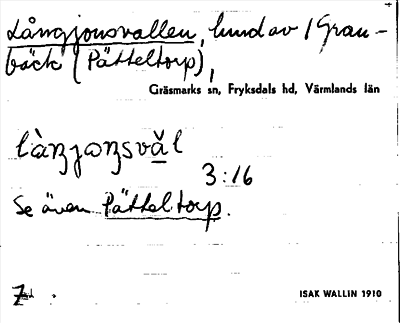 Långjonsvallen, lund av 1 Gran-
bäck (Pätteltorp),
Gräsmarks sn, Fryksdals hd, Värmlands län
3:16
Se även Pätteltorp.
ISAK WALLIN 1910